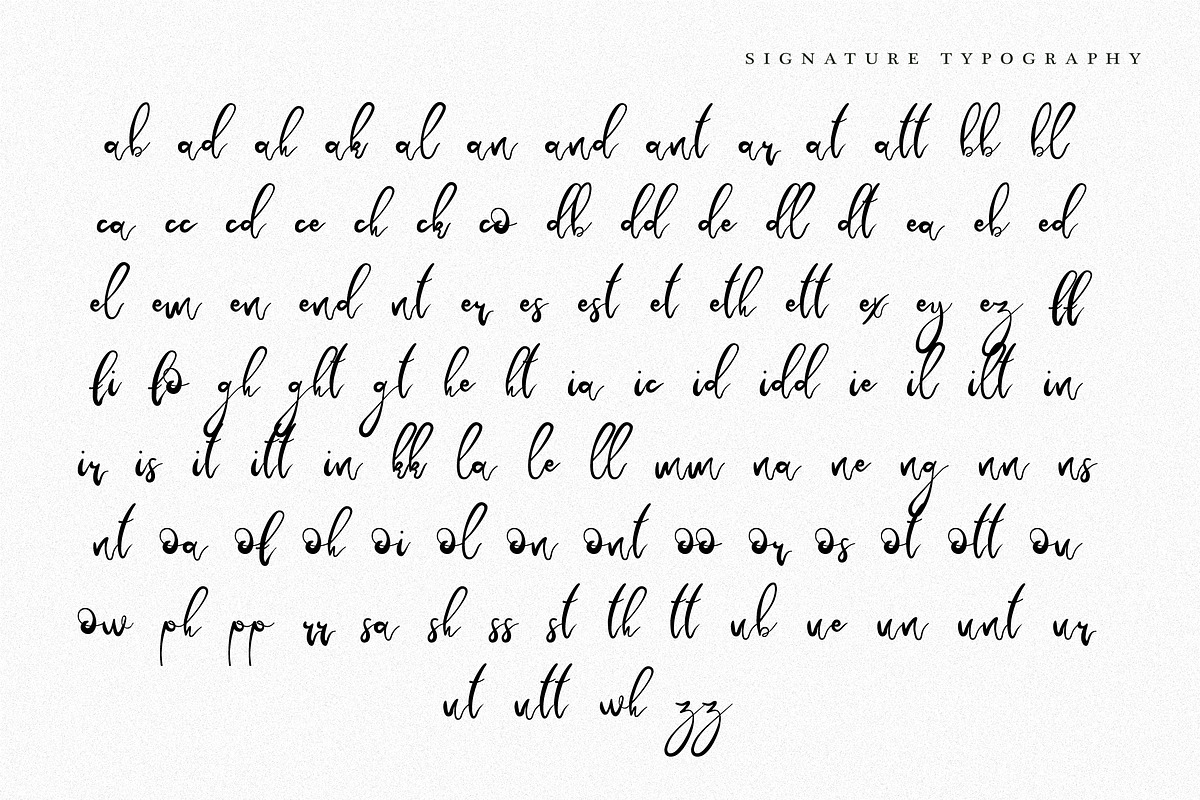 SIGNATURE TYPOGRAPHY
ab ad ah ak al an and ant ar at att bb bl
ca cc cd ce ch ck co db dd de dl dt ea eb ed
el em en end nt er es est et eth ett ex ey ez ff
fi fo gh ght gt he ht ia ic id idd ie il ilt in
ir is it itt in kk la le ll mm na ne ng nn ns
nt oa of oh oi ol on ont oo or os ot ott ou
ow ph pp rr sa sh ss st th tt ub ue un unt ur
ut utt wh zz